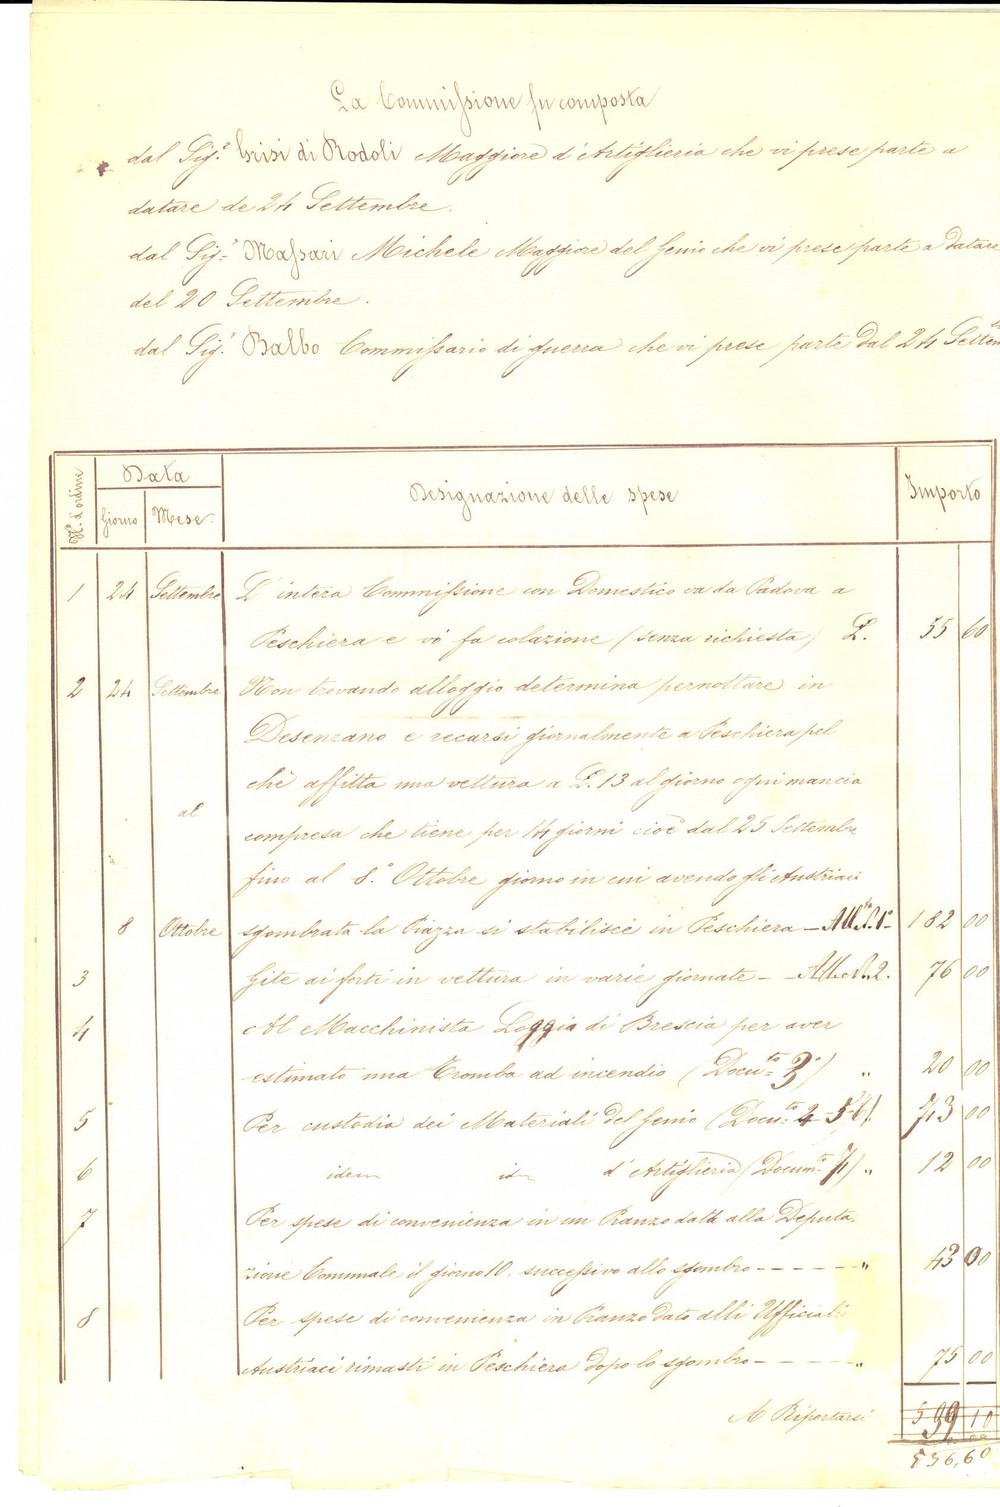 La Commissione fu composta
dal Sig.r Grisi di Rodoli Maggiore d'Artiglieria che vi prese parte a
datare de 24 Settembre.
dal Sig.r Massari Michele Maggiore del Genio che vi prese parte a datare
del 20 Settembre.
dal Sig.r Balbo Commissario di guerra che vi prese parte dal 24 Settem
N.o d'ordine Data Giorno Mese Designazione delle spese Importo
1 24 Settembre L'intera Commissione con Domestico va da Padova a
Peschiera e vi fa colazione (senza richiesta) L. 55 60
2 24 Settembre Non trovando alloggio determina pernottare in
Desenzano e recarsi giornalmente a Peschiera pel
chè affitta una vettura a L. 13 al giorno ogni mancia
al
compresa che tiene per 14 giorni cioè dal 25 Settembre
fino al 8.o Ottobre giorno in cui avendo gli Austriaci
8 Ottobre sgombrata la Piazza si stabilisce in Peschiera - All.to N. 1o - 182 00
3 Gite ai forti in vettura in varie giornate - - All.o N. 2. 76 00
4 Al Macchinista Loggia di Brescia per aver
estimato una Tromba ad incendio (Docu.to 3o) " 20 00
5 Per custodia dei Materiali del Genio (Docu.to 4 5 6). 73 00
6 idem id d'Artiglieria (Docum.to 7) " 12 00
7 Per spese di convenienza in un Pranzo dato alla Deputa.
zione Comunale il giorno 10. successivo allo sgombro - - - - - - " 43 00
8 Per spese di convenienza in Pranzo dato alli Ufficiali
Austriaci rimasti in Peschiera dopo lo sgombro - - - - - - " 75 00
A Riportarsi 599 10
536,60